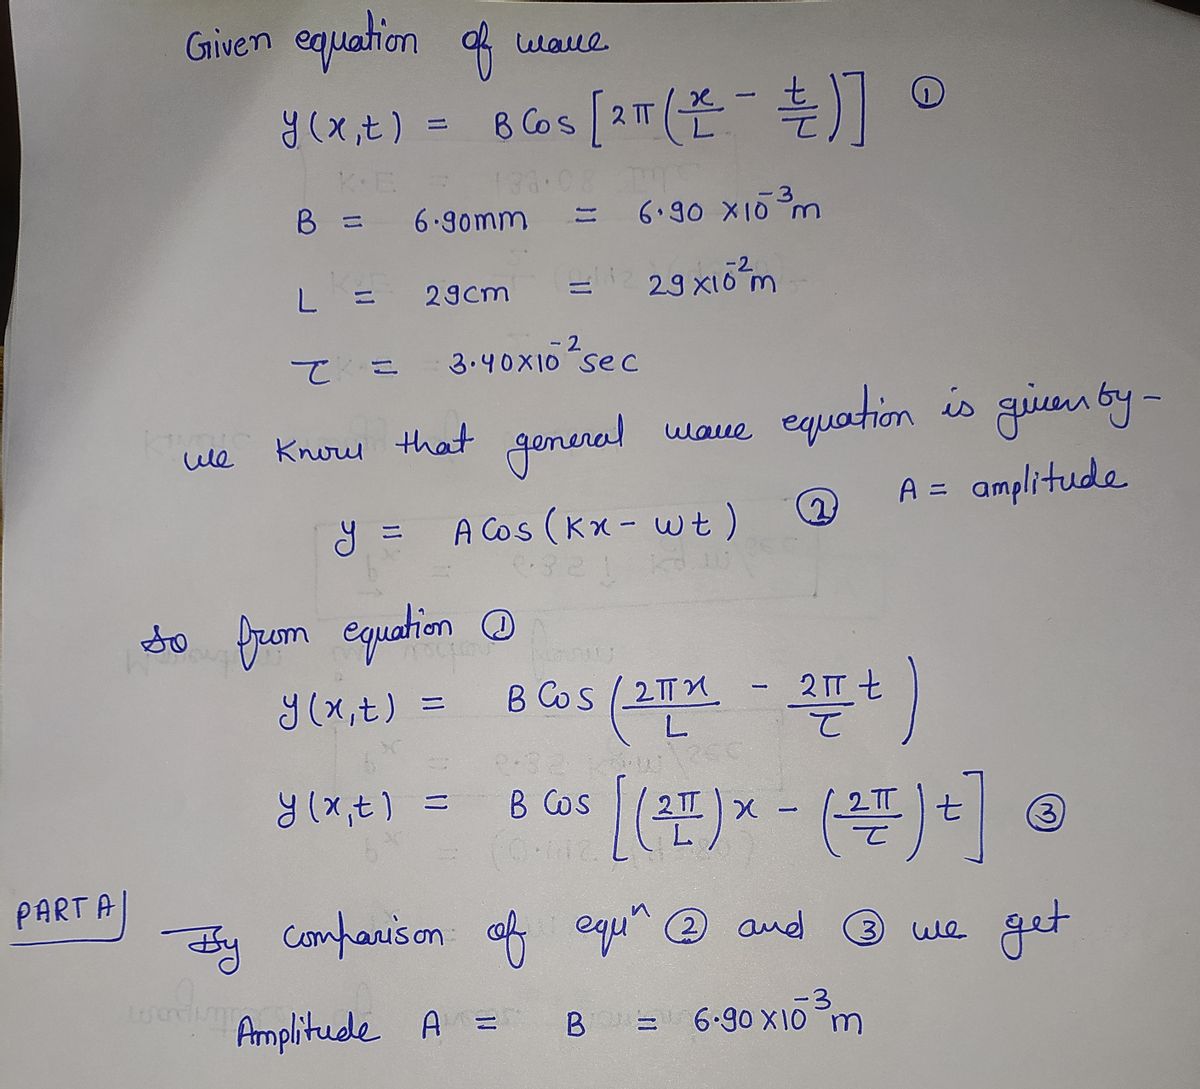 Given equation of wave
y(x,t) = B Cos [2π(x/L - t/τ)] ①
B = 6.90mm = 6.90 x10⁻³m
L = 29cm = 29x10⁻²m
τ = 3.40x10⁻²sec
we know that general wave equation is given by -
y = A Cos (Kx - wt) ② A = amplitude
so from equation ①
y(x,t) = B Cos (2πx/L - 2π/τ t)
y(x,t) = B Cos [(2π/L)x - (2π/τ)t] ③
PART A) By comparison of equⁿ ② and ③ we get
Amplitude A = B = 6.90 x10⁻³m